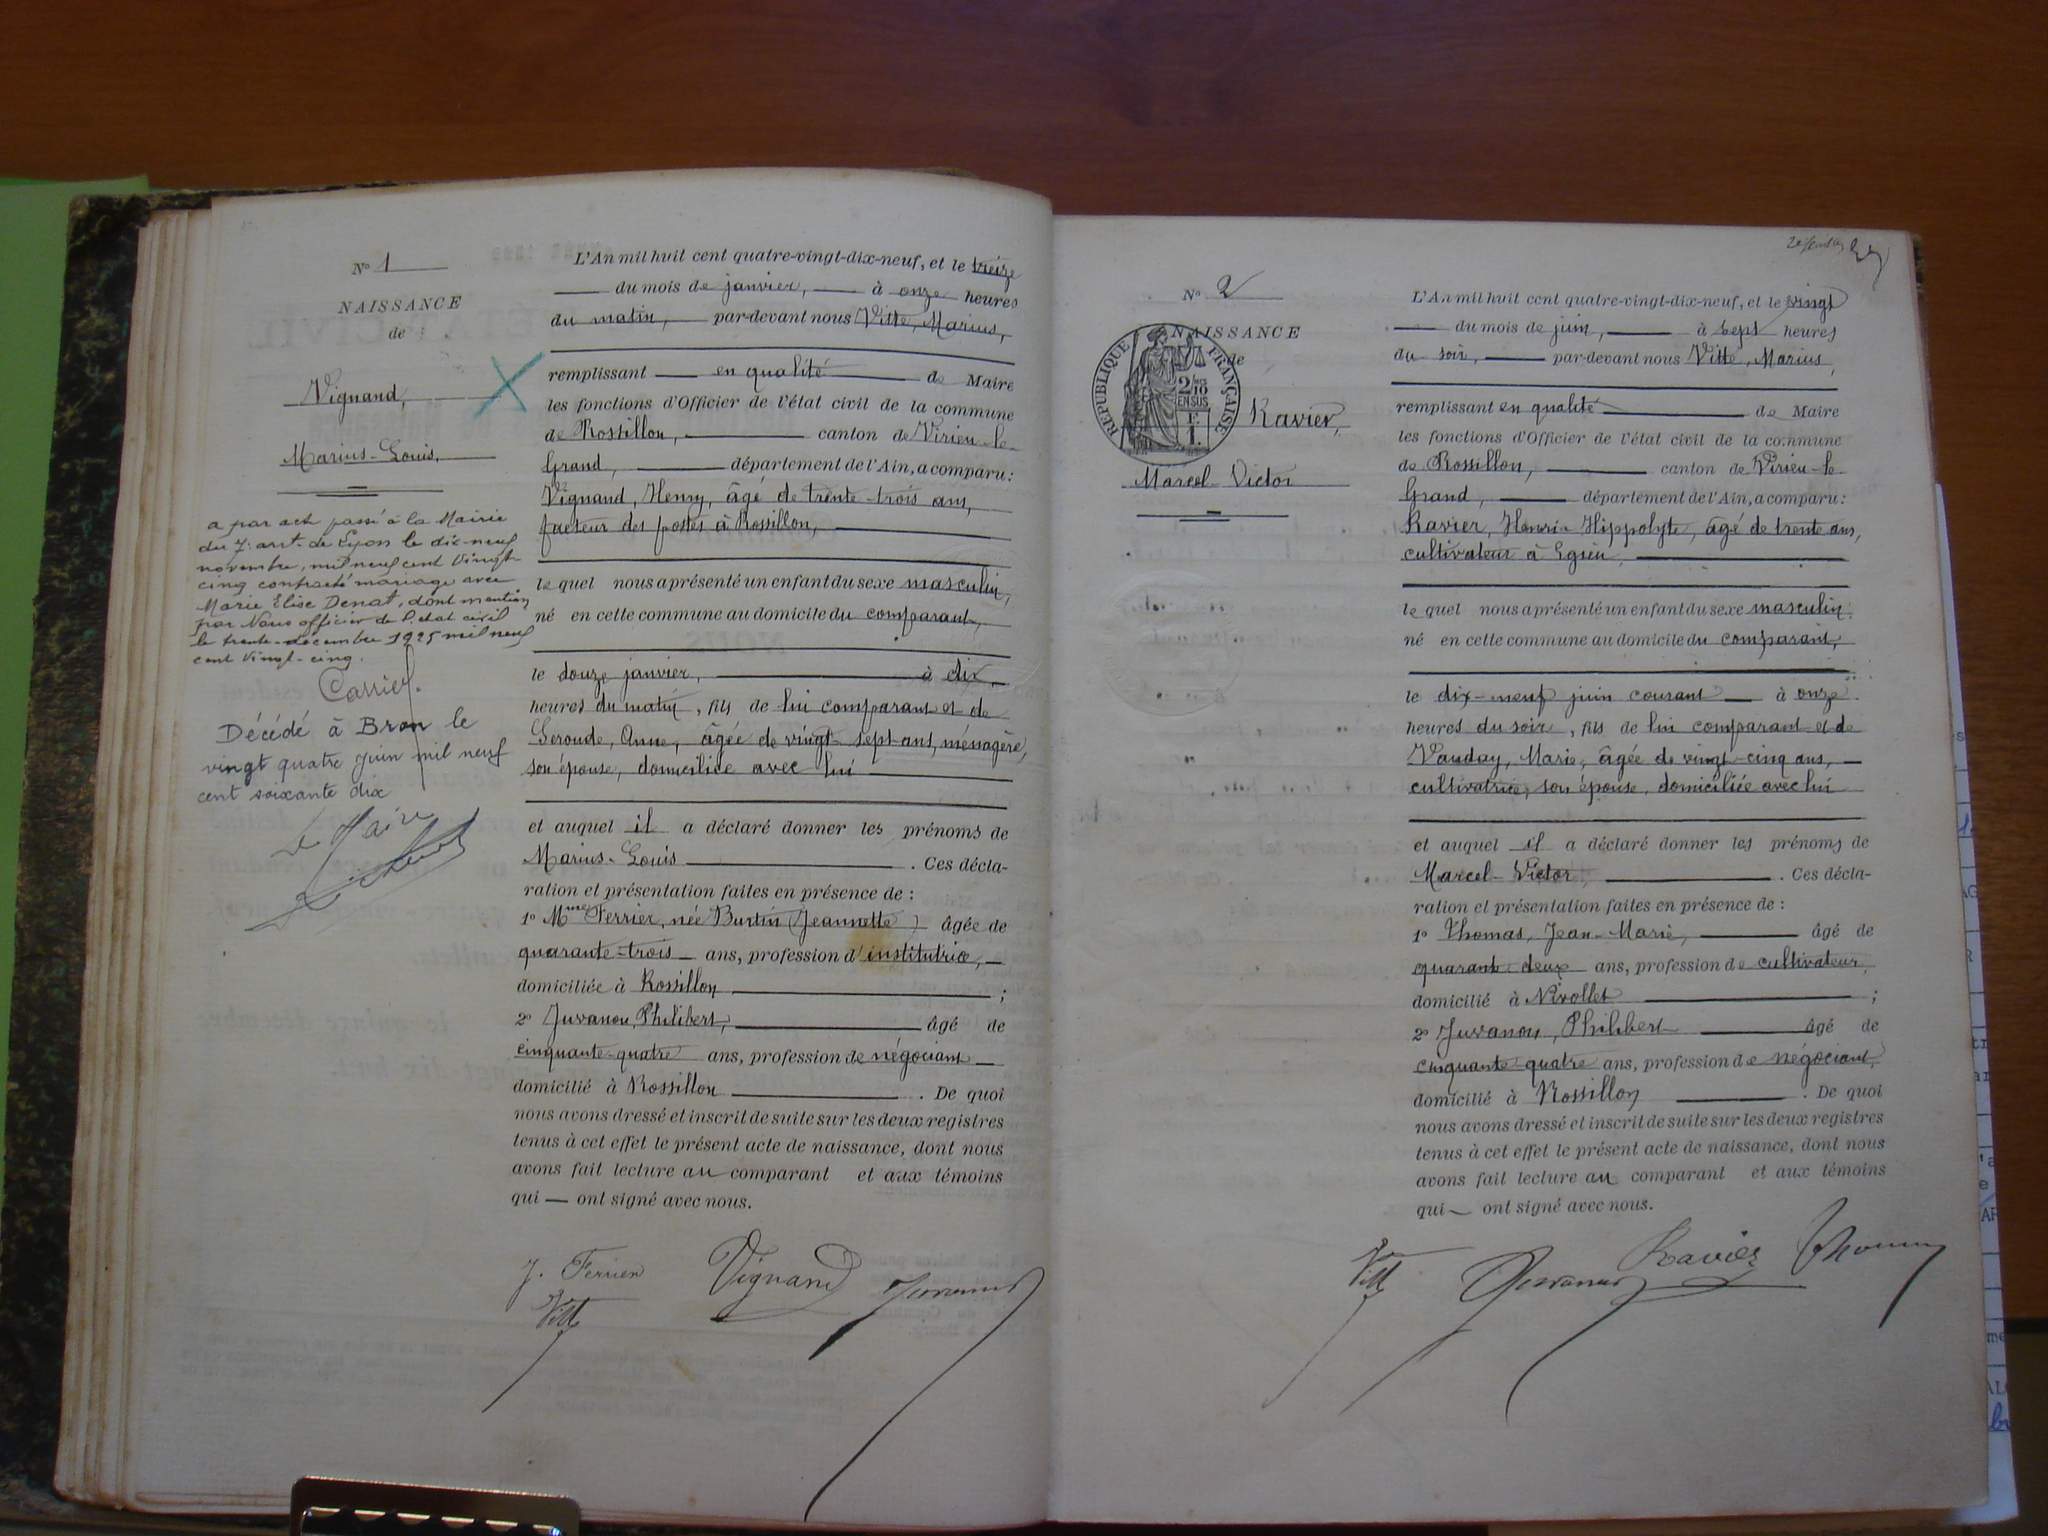 Nº 1
NAISSANCE
de
Vignand,
Marius-Louis,
a par acte passé à la Mairie
du 7e arrt. de Lyon le dix-neuf
novembre, mil neuf cent vingt-
cinq contracté mariage avec
Marie Elise Denat, dont mention
par Nous officier de l'etat civil
le trente decembre 1925 mil neuf
cent vingt-cinq.
Décédé à Bron le
vingt quatre juin mil neuf
cent soixante dix
Le Maire
L'An mil huit cent quatre-vingt-dix-neuf, et le treize
du mois de janvier, à onze heures
du matin, par-devant nous Vitte, Marius,
remplissant en qualité de Maire
les fonctions d'Officier de l'état civil de la commune
de Rossillon, canton de Virieu-le-
Grand, département de l'Ain, a comparu:
Vignand, Henry, âgé de trente-trois ans,
facteur des postes à Rossillon,
le quel nous a présenté un enfant du sexe masculin,
né en cette commune au domicile du comparant,
le douze janvier, à dix
heures du matin, fils de lui comparant et de
Geroude, Anne, âgée de vingt-sept ans, ménagère,
son épouse, domiciliée avec lui
et auquel il a déclaré donner les prénoms de
Marius-Louis . Ces décla-
ration et présentation faites en présence de :
1º Mme Ferrier, née Burtin (Jeannette) âgée de
quarante-trois ans, profession d'institutrice,
domiciliée à Rossillon ;
2º Juvanon, Philibert, âgé de
cinquante-quatre ans, profession de négociant
domicilié à Rossillon . De quoi
nous avons dressé et inscrit de suite sur les deux registres
tenus à cet effet le présent acte de naissance, dont nous
avons fait lecture au comparant et aux témoins
qui ont signé avec nous.
J. Ferrier Vignand Juvanon
Vitte
Nº 2
NAISSANCE
de
RÉPUBLIQUE FRANÇAISE
2/10
EN SUS
F.
1.
Ravier,
Marcel-Victor
L'An mil huit cent quatre-vingt-dix-neuf, et le vingt
du mois de juin, à sept heures
du soir, par-devant nous Vitte, Marius,
remplissant en qualité de Maire
les fonctions d'Officier de l'état civil de la commune
de Rossillon, canton de Virieu-le-
Grand, département de l'Ain, a comparu:
Ravier, Henri-Hippolyte, âgé de trente ans,
cultivateur à Egieu,
le quel nous a présenté un enfant du sexe masculin,
né en cette commune au domicile du comparant,
le dix-neuf juin courant à onze
heures du soir, fils de lui comparant et de
Vauday, Marie, âgée de vingt-cinq ans,
cultivatrice, son épouse, domiciliée avec lui
et auquel il a déclaré donner les prénoms de
Marcel-Victor, . Ces décla-
ration et présentation faites en présence de :
1º Thomas, Jean-Marie, âgé de
quarante deux ans, profession de cultivateur,
domicilié à Nivollet ;
2º Juvanon, Philibert âgé de
cinquante-quatre ans, profession de négociant,
domicilié à Rossillon . De quoi
nous avons dressé et inscrit de suite sur les deux registres
tenus à cet effet le présent acte de naissance, dont nous
avons fait lecture au comparant et aux témoins
qui ont signé avec nous.
Vitte Juvanon Ravier Thomas